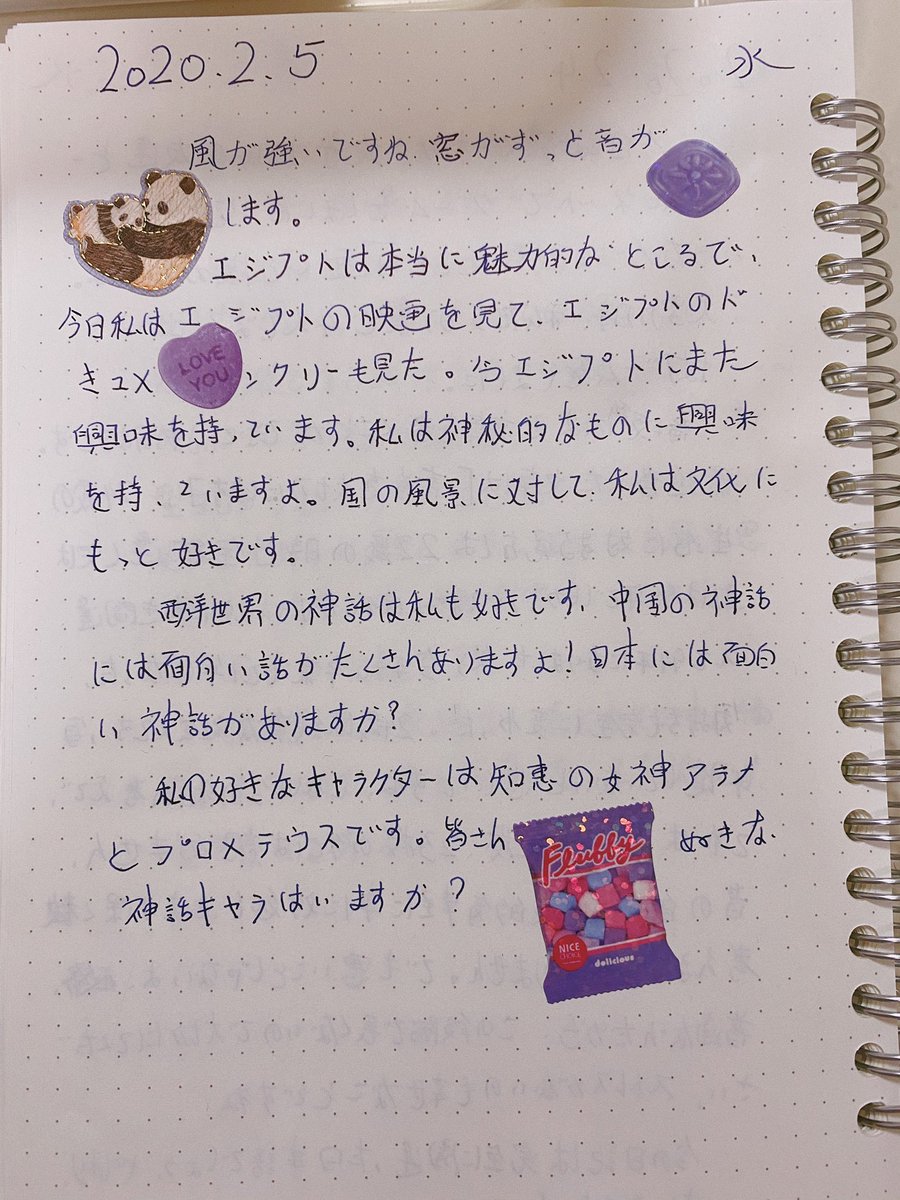 2020.2.5 水
風が強いですね 窓がずっと音が
します。
エジプトは本当に魅力的なところで、
今日私はエジプトの映画を見て、エジプトのド
きュメ LOVE YOU ンクリーも見た。今エジプトにまた
興味を持っています。私は神秘的なものに興味
を持っていますよ。国の風景に対して、私は文化に
もっと好きです。
西洋世界の神話は私も好きです、中国の神話
には面白い話がたくさんありますよ!日本には面白
い神話がありますか?
私の好きなキャラクターは知恵の女神アラナ
とプロメテウスです。皆さん 好きな
神話キャラはいますか?
Fluffy
NICE
CHOICE
delicious